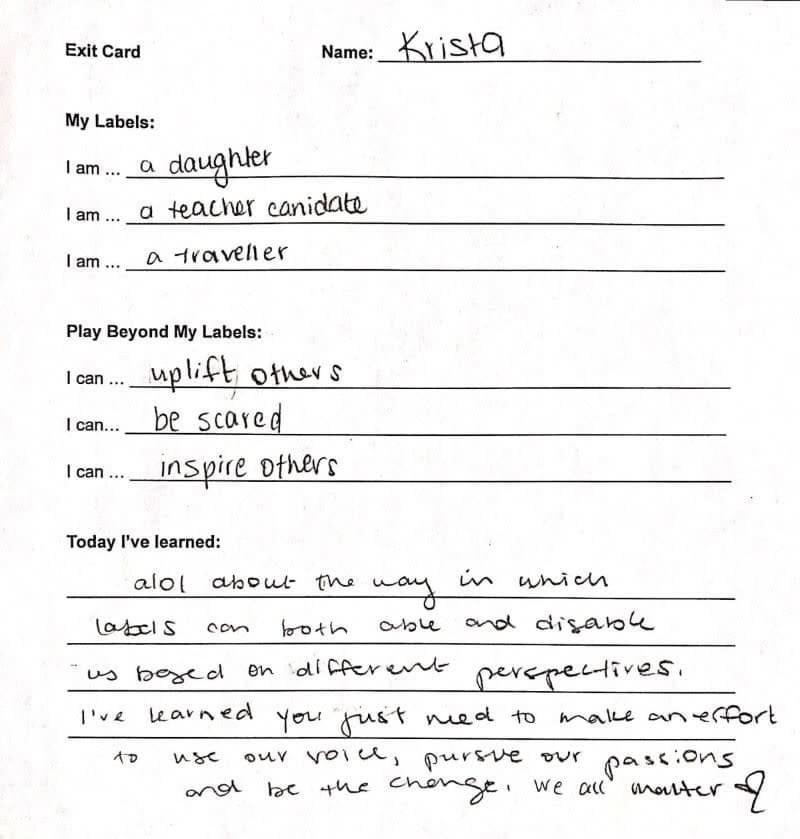 Exit Card Name: Krista
My Labels:
I am ... a daughter
I am ... a teacher canidate
I am ... a traveller
Play Beyond My Labels:
I can ... uplift others
I can... be scared
I can ... inspire others
Today I've learned:
alot about the way in which
labels can both able and disable
us based on different perspectives.
I've learned you just need to make an effort
to use our voice, pursue our passions
and be the change. We all matter